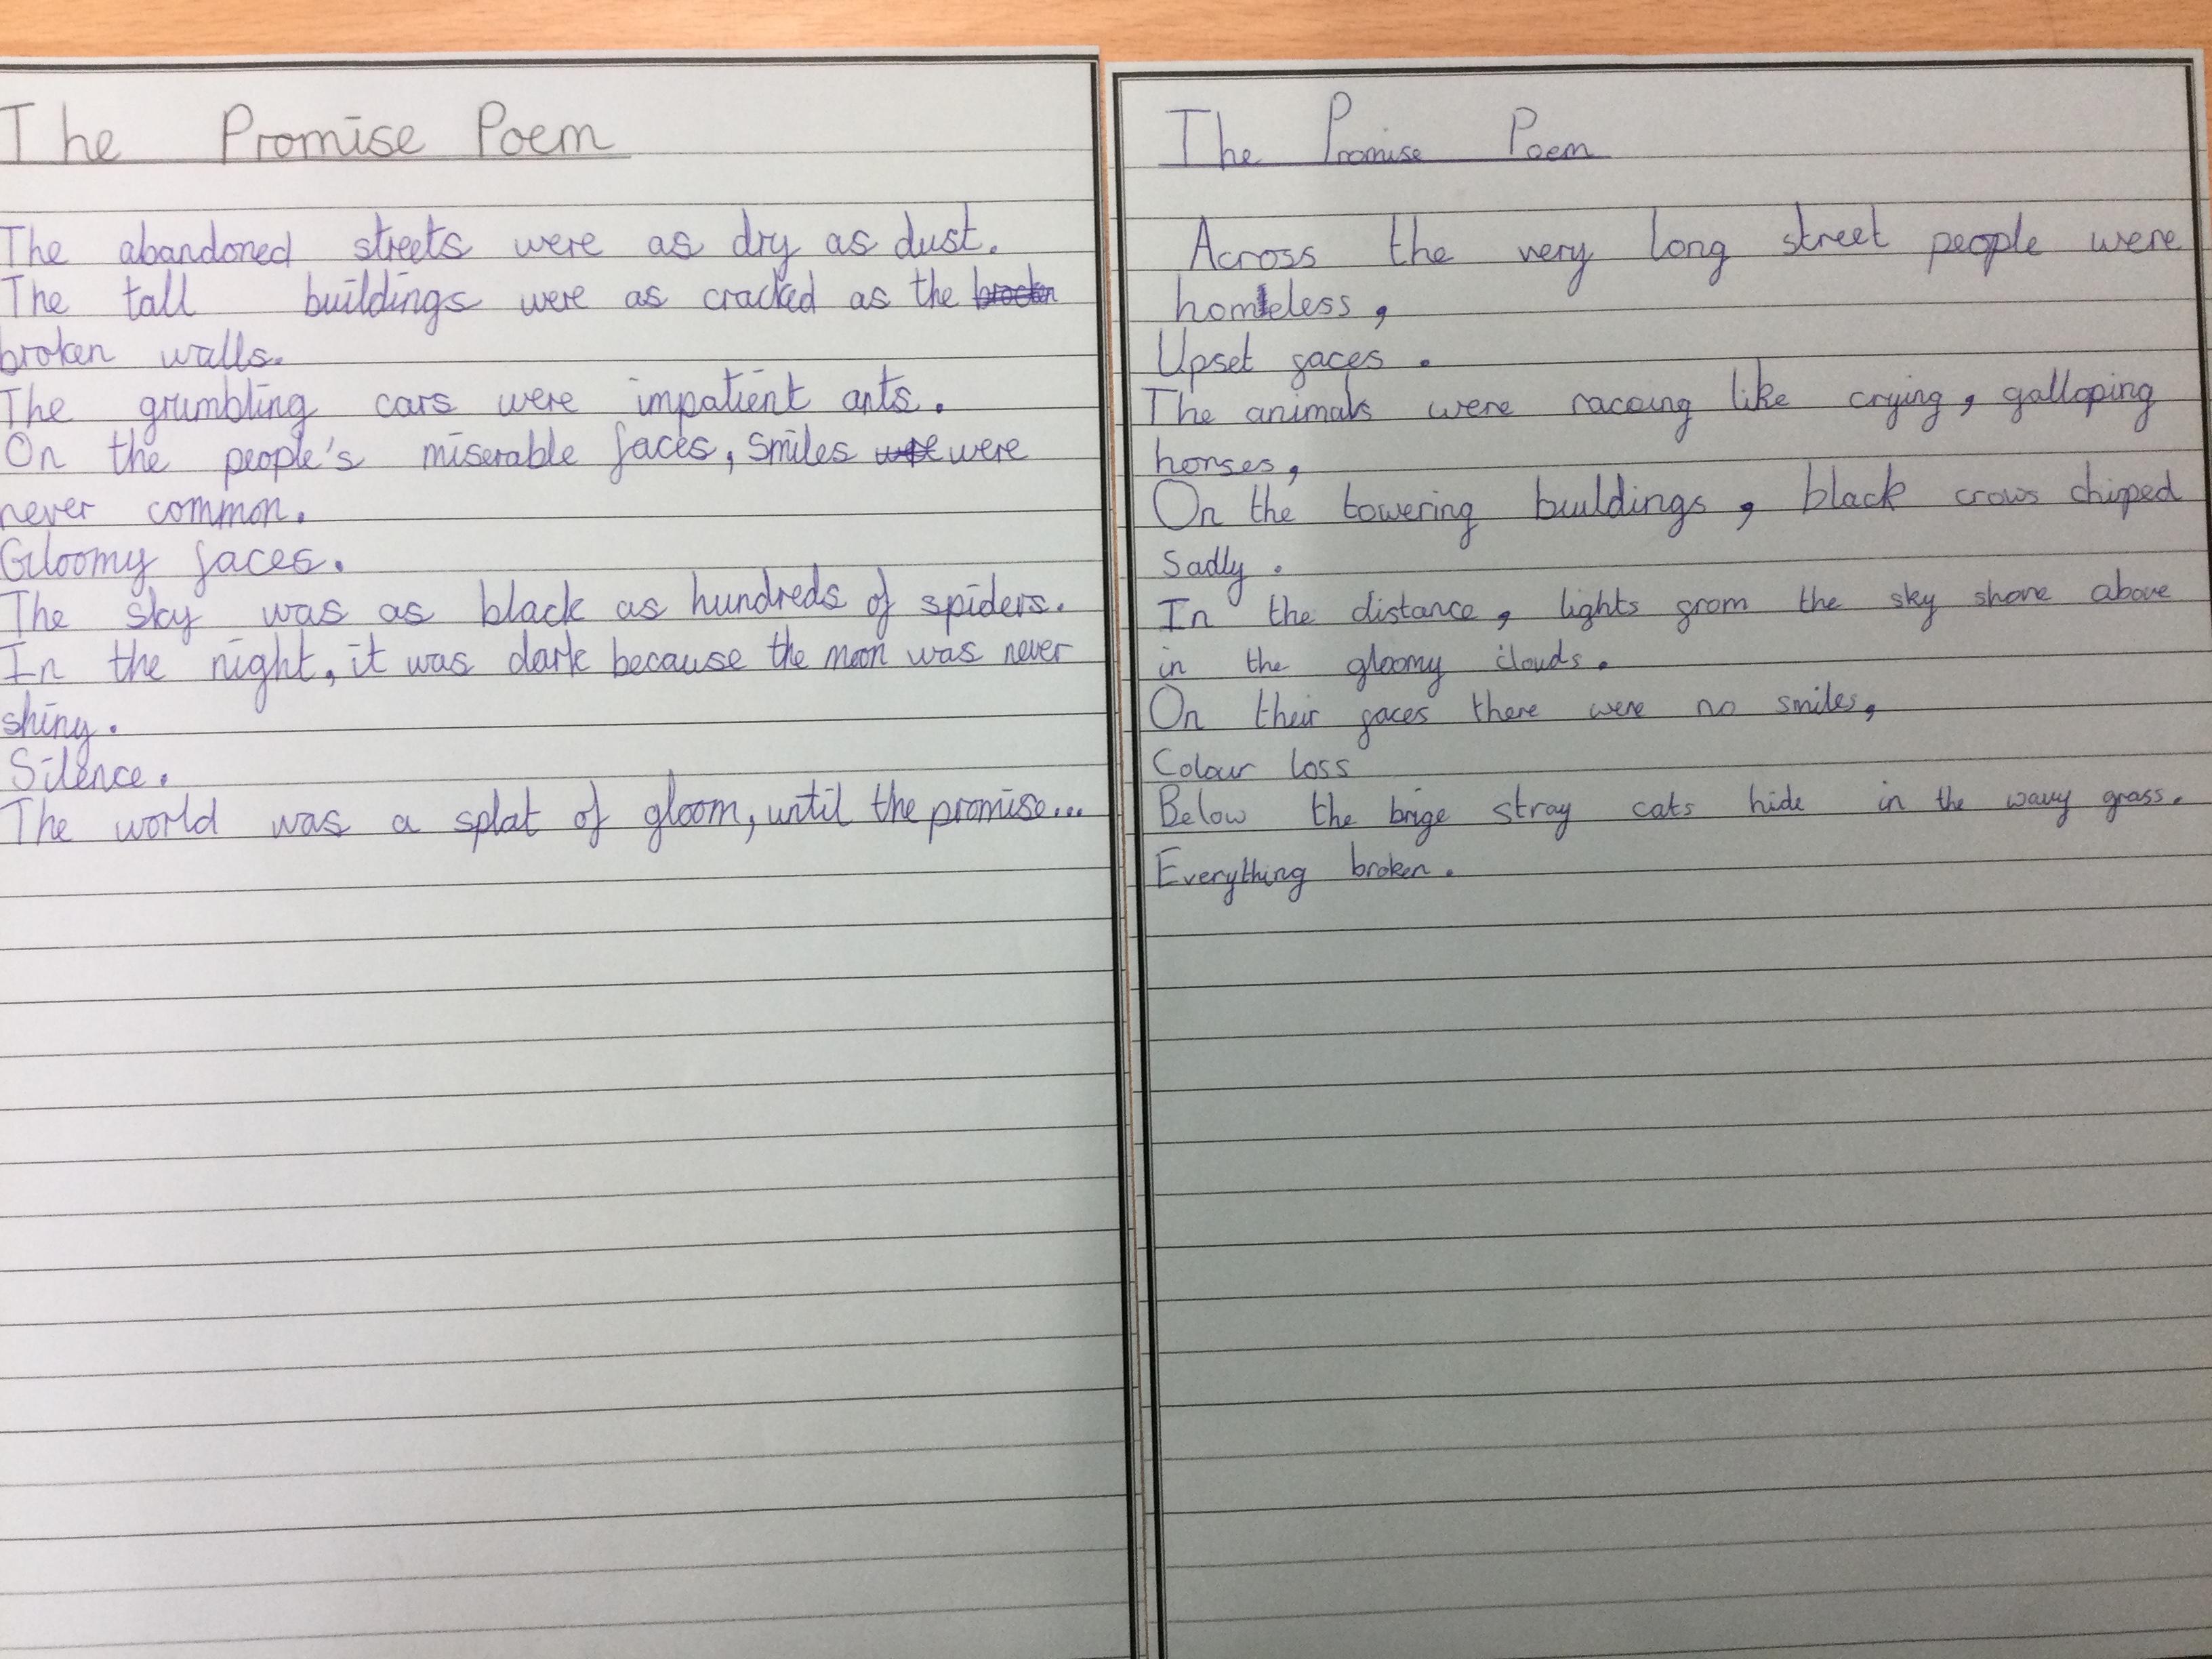 The Promise Poem
The abandoned streets were as dry as dust.
The tall buildings were as cracked as the
broken walls.
The grumbling cars were impatient ants.
On the people's miserable faces, smiles were
never common.
Gloomy faces.
The sky was as black as hundreds of spiders.
In the night, it was dark because the moon was never
shiny.
Silence.
The world was a splat of gloom, until the promise...
The Promise Poem
Across the very long street people were
homeless,
Upset faces.
The animals were racing like crying, galloping
horses,
On the towering buildings, black crows chirped
sadly.
In the distance, lights from the sky shone above
in the gloomy clouds.
On their faces there were no smiles,
Colour loss
Below the brige stray cats hide in the wavy grass.
Everything broken.